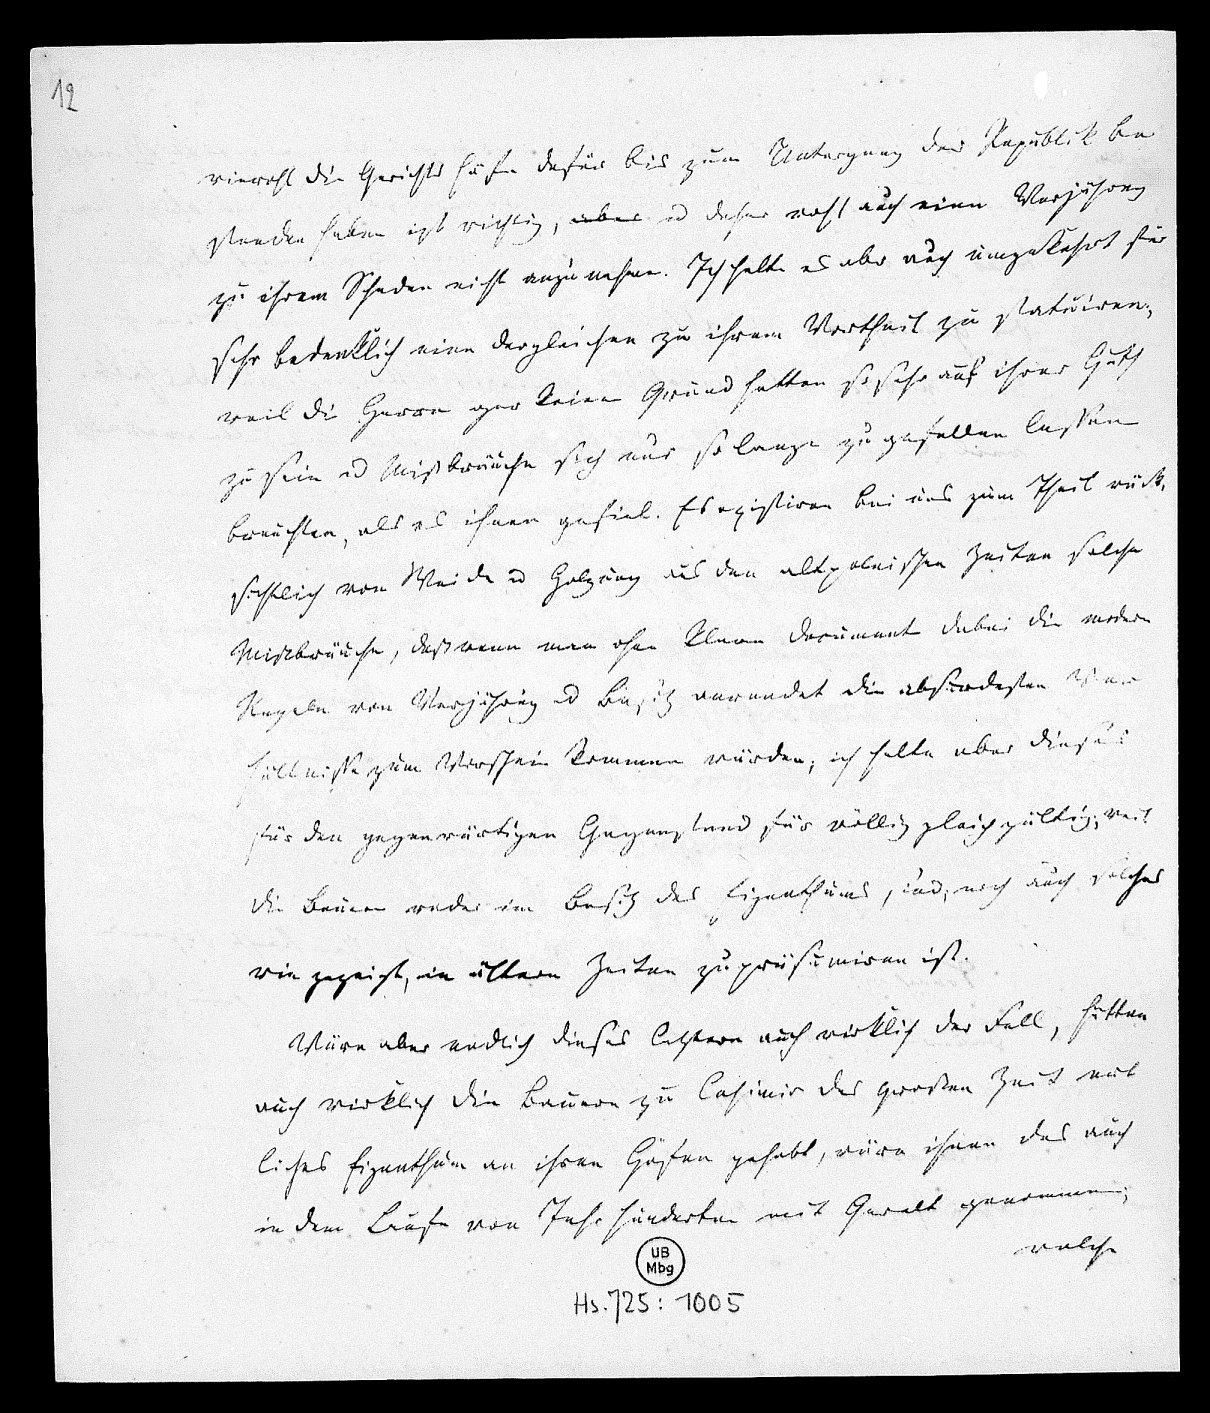 12
wiewohl die Gerichtshöfe dafür bis zum Untergang der Republik be
standen haben ist richtig, aber u daher wohl auch eine Verjährung
zu ihrem Schaden nicht anzunehmen. Ich halte es aber auch umgekehrt für
sehr bedenklich eine dergleichen zu ihrem Vortheil zu statuiren;
weil die Herren gar keinen Grund hatten so sehr auf ihrer Huth
zu sein u Mißbräuche sich nur so lange zu gefallen lassen
brauchten, als es ihnen gefiel. Es existiren bei uns zum Theil rück,
sichtlich von Weide u Holzung aus den altpolnischen Zeiten solche
Mißbräuche, daß wenn man ohne klare Documente dabei die modern
Regeln von Verjährung u Besitz anwendet die absurdesten Ver
hältnisse zum Vorschein kommen würden; ich halte aber dieses
für den gegenwärtigen Gegenstand für völlig gleichgültig; weil
die Bauern weder im Besitz des Eigenthums sind, noch auch solches
wie gezeigt, in ältern Zeiten zu präsumiren ist.
Wäre aber endlich dieses letztere auch wirklich der Fall, hätten
auch wirklich die Bauern zu Casimir des großen Zeit erb
liches Eigenthum an ihren Höfen gehabt, wäre ihnen das auch
in dem Laufe von Jahrhunderten mit Gewalt genommen;
welche
UB
Mbg
Hs. 725: 1005